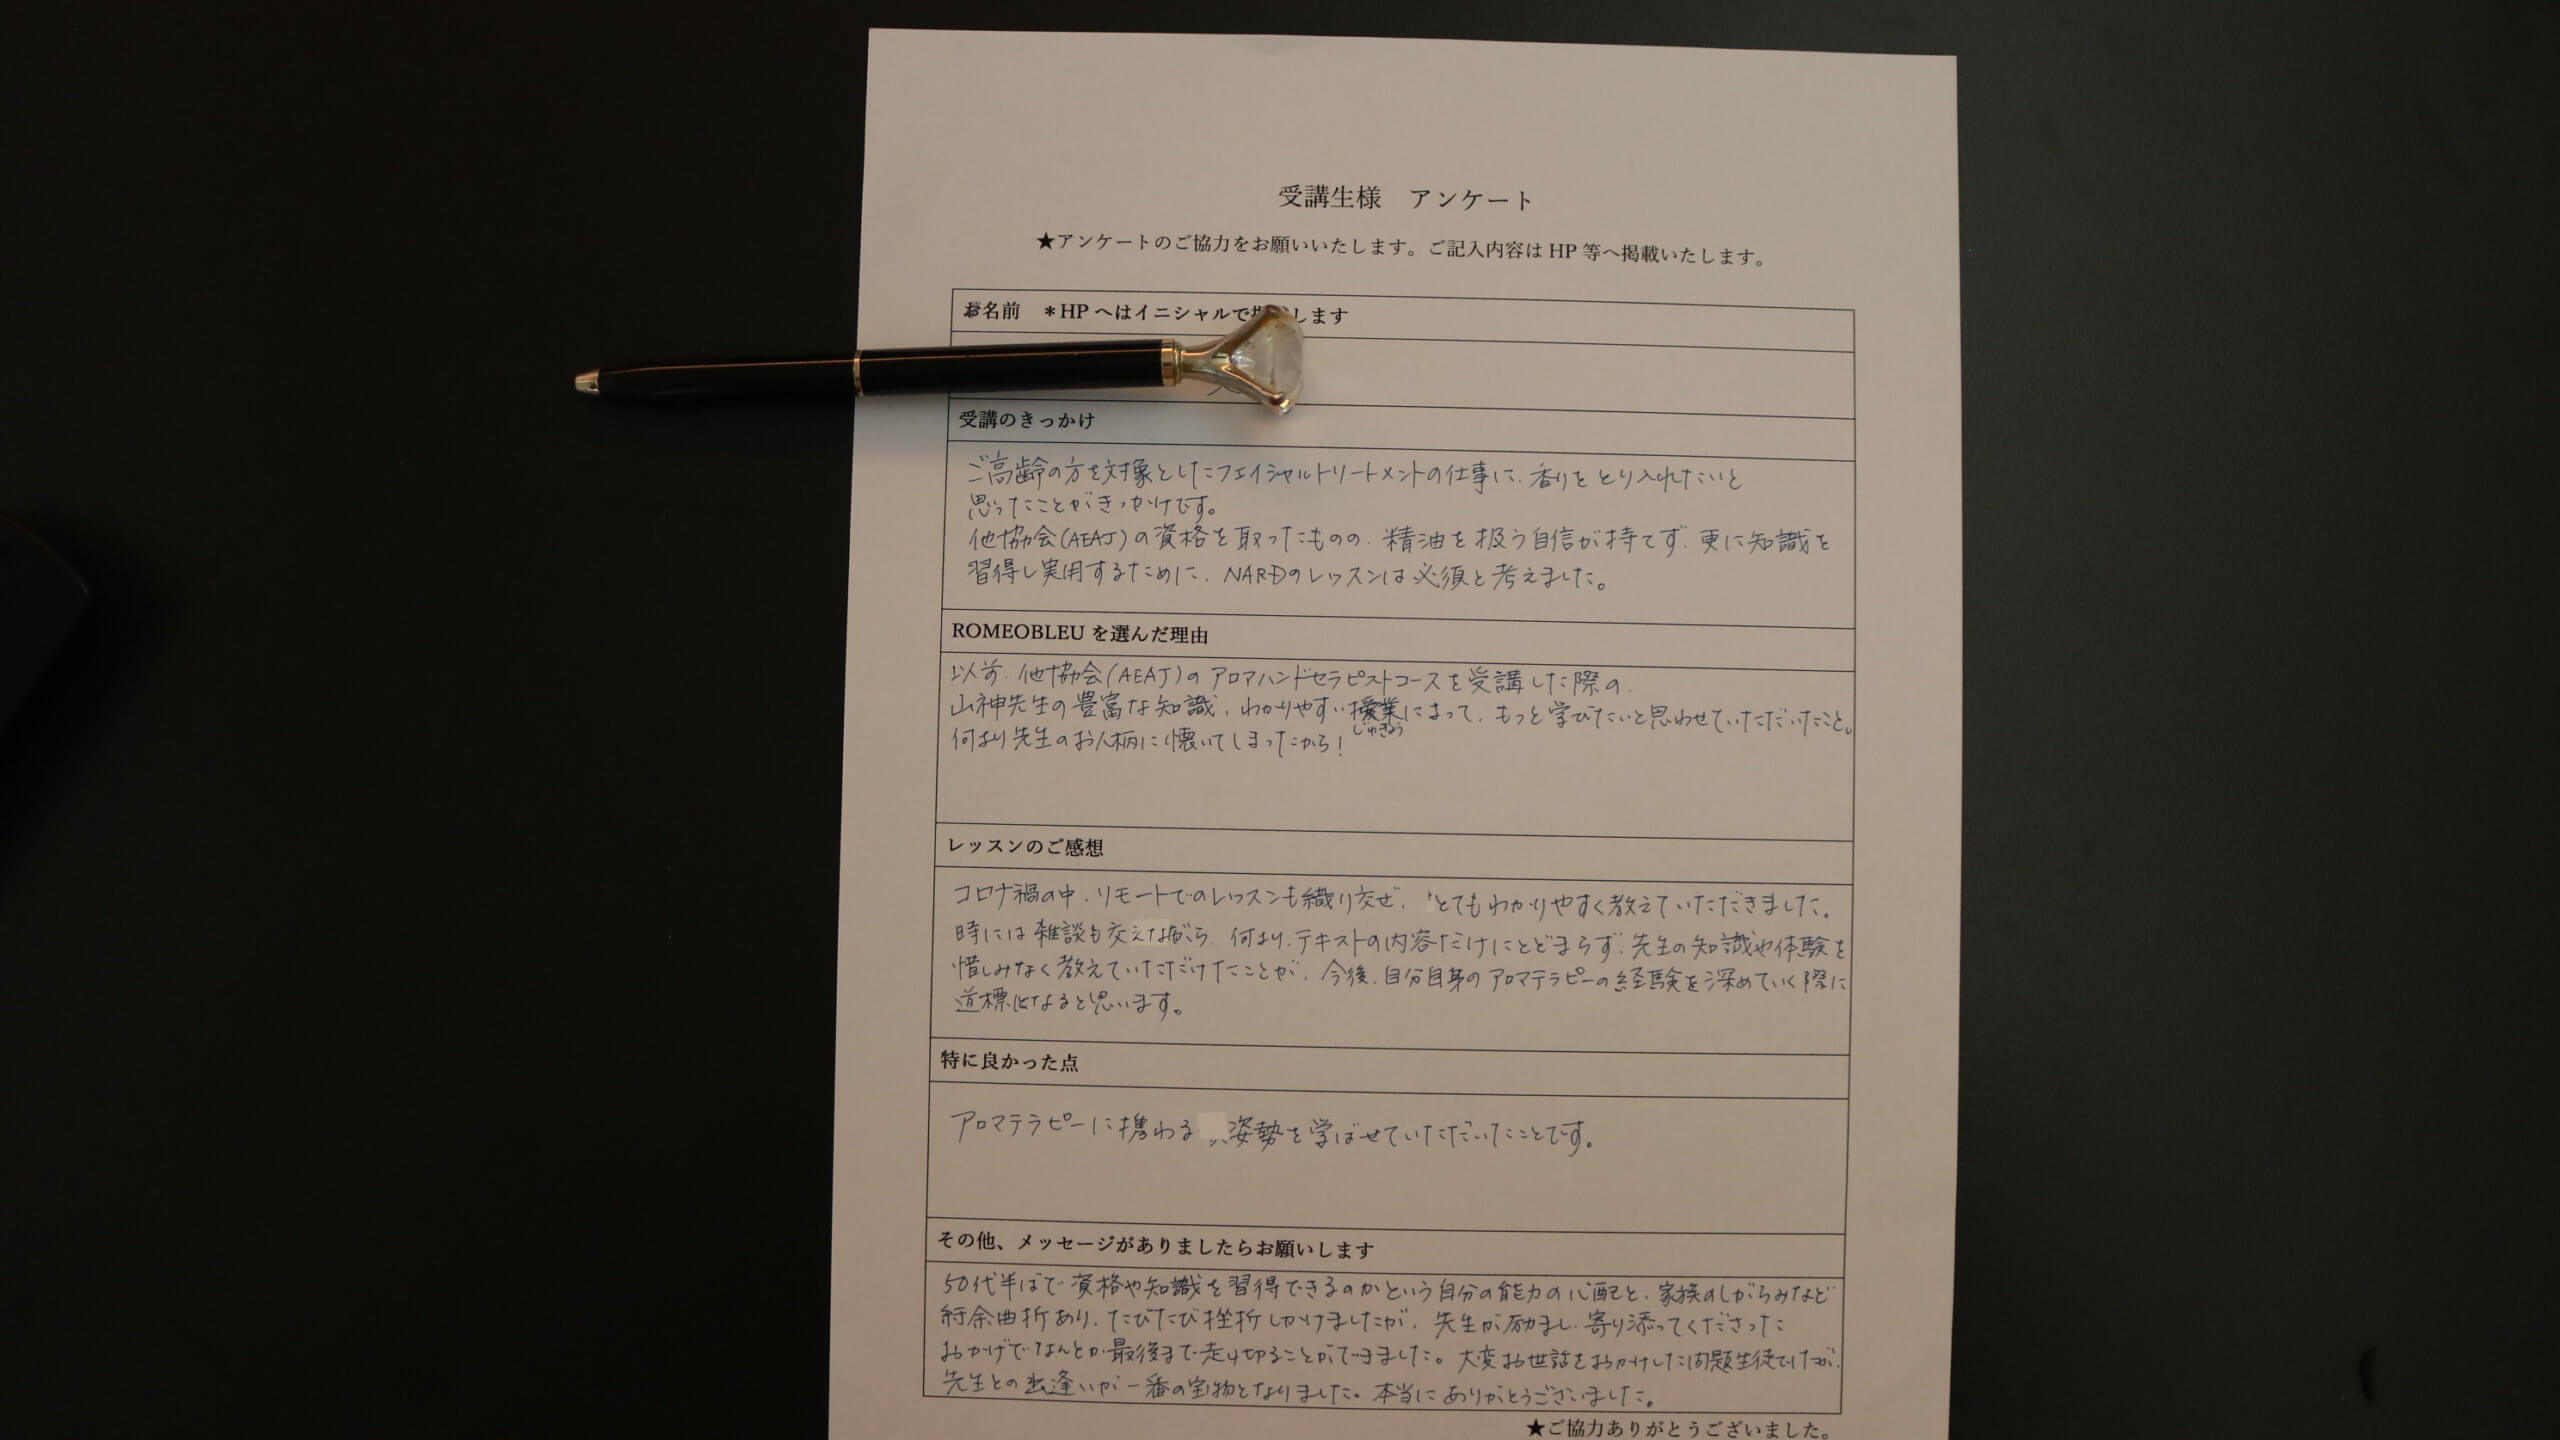 受講生様　アンケート
★アンケートのご協力をお願いいたします。ご記入内容は HP 等へ掲載いたします。
お名前　＊HP へはイニシャルで掲載します
受講のきっかけ
ご高齢の方を対象としたフェイシャルトリートメントの仕事に、香りをとり入れたいと
思ったことがきっかけです。
他協会(AEAJ)の資格を取ったものの、精油を扱う自信が持てず、更に知識を
習得し実用するために、NARDのレッスンは必須と考えました。
ROMEOBLEU を選んだ理由
以前、他協会(AEAJ)のアロマハンドセラピストコースを受講した際の、
山神先生の豊富な知識、わかりやすい授業によって、もっと学びたいと思わせていただいたこと。
じゅぎょう
何より先生のお人柄に懐いてしまったから!
レッスンのご感想
コロナ禍の中、リモートでのレッスンも織り交ぜ、とてもわかりやすく教えていただきました。
時には雑談も交えながら、何より、テキストの内容だけにとどまらず、先生の知識や体験を
惜しみなく教えていただけたことが、今後、自分自身のアロマテラピーの経験を深めていく際に
道標になると思います。
特に良かった点
アロマテラピーに携わる 姿勢を学ばせていただいたことです。
その他、メッセージがありましたらお願いします
50代半ばで資格や知識を習得できるのかという自分の能力の心配と、家族のしがらみなど
紆余曲折あり、たびたび挫折しかけましたが、先生が励まし、寄り添ってくださった
おかげでなんとか最後まで走り切ることができました。大変お世話をおかけした問題生徒でしたが、
先生との出逢いが一番の宝物となりました。本当にありがとうございました。
★ご協力ありがとうございました。